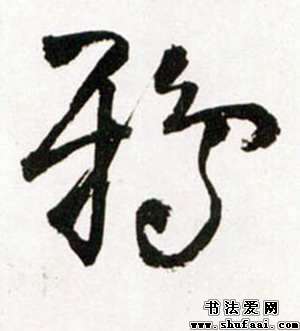 鴉
书法爱网
www.shufaai.com